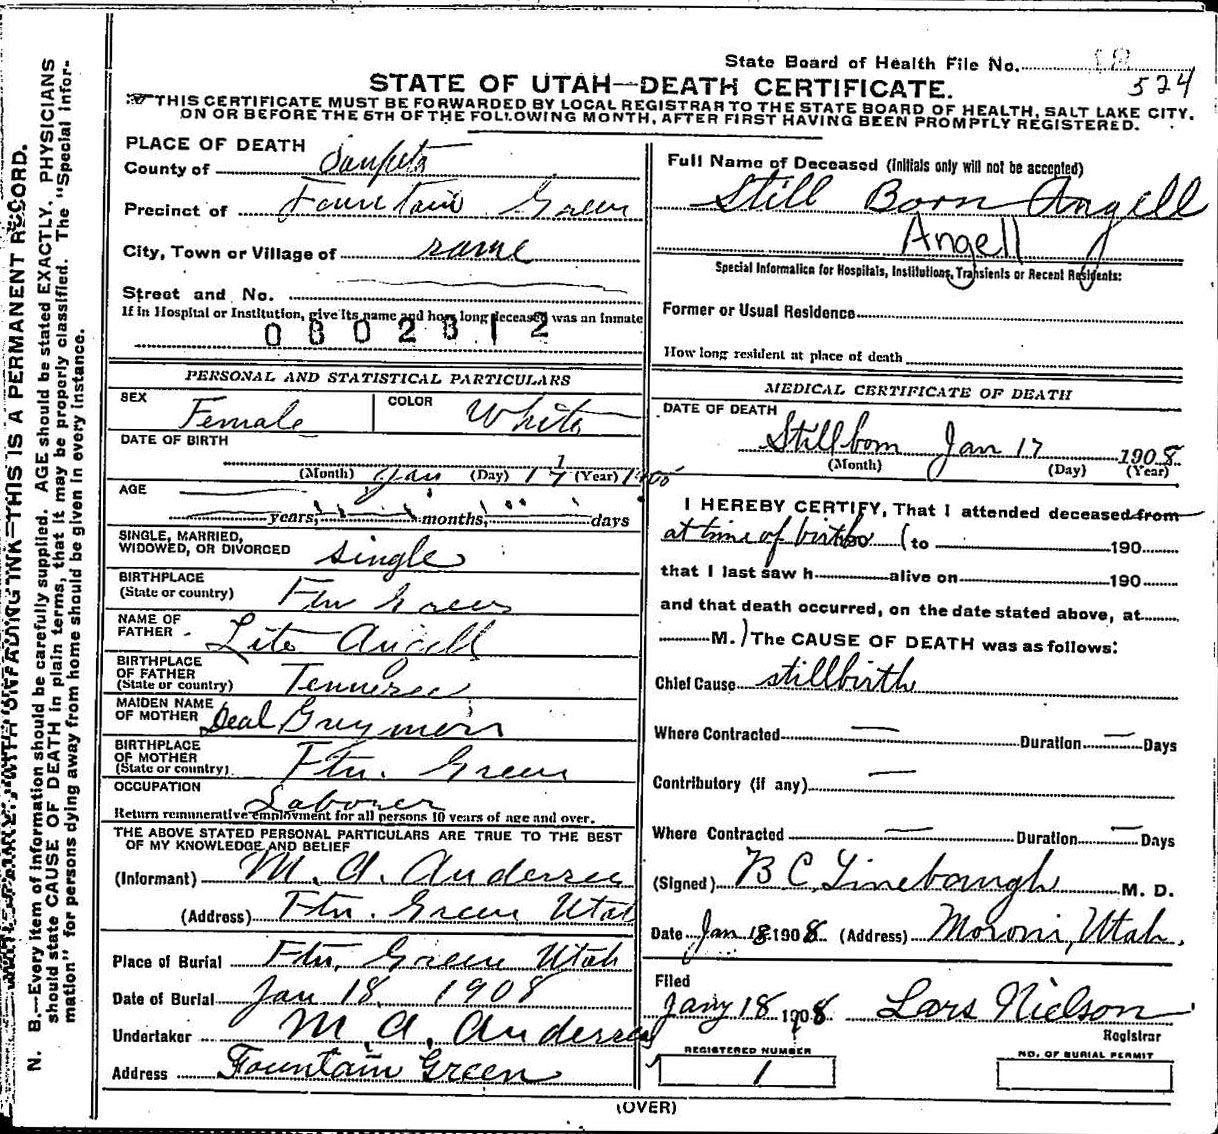 State Board of Health File No. 18
524
STATE OF UTAH—DEATH CERTIFICATE.
THIS CERTIFICATE MUST BE FORWARDED BY LOCAL REGISTRAR TO THE STATE BOARD OF HEALTH, SALT LAKE CITY.
ON OR BEFORE THE 5TH OF THE FOLLOWING MONTH, AFTER FIRST HAVING BEEN PROMPTLY REGISTERED.
N. B.—Every item of information should be carefully supplied. AGE should be stated EXACTLY. PHYSICIANS
should state CAUSE OF DEATH in plain terms, that it may be properly classified. The "Special Infor-
mation" for persons dying away from home should be given in every instance.
WITH UNFADING INK—THIS IS A PERMANENT RECORD.
PLACE OF DEATH
County of Sanpete
Precinct of Fountain Green
City, Town or Village of same
Street and No.
If in Hospital or Institution, give its name and how long deceased was an inmate
0802312
PERSONAL AND STATISTICAL PARTICULARS
SEX Female COLOR White
DATE OF BIRTH
(Month) Jan (Day) 17 (Year)
AGE
years, months, days
SINGLE, MARRIED,
WIDOWED, OR DIVORCED single
BIRTHPLACE
(State or country) Ftn Green
NAME OF
FATHER Lito Angell
BIRTHPLACE
OF FATHER
(State or country) Tennessee
MAIDEN NAME
OF MOTHER Deal
BIRTHPLACE
OF MOTHER
(State or country) Ftn. Green
OCCUPATION
Laborer
Return remunerative employment for all persons 10 years of age and over.
THE ABOVE STATED PERSONAL PARTICULARS ARE TRUE TO THE BEST
OF MY KNOWLEDGE AND BELIEF
(Informant) M. A. Andersen
(Address) Ftn. Green Utah
Place of Burial Ftn. Green Utah
Date of Burial Jan 18 1908
Undertaker M. A. Andersen
Address Fountain Green
Full Name of Deceased (Initials only will not be accepted)
Still Born Angell
Angell
Special Information for Hospitals, Institutions, Transients or Recent Residents:
Former or Usual Residence
How long resident at place of death
MEDICAL CERTIFICATE OF DEATH
DATE OF DEATH
Stillborn Jan 17 1908
(Month) (Day) (Year)
I HEREBY CERTIFY, That I attended deceased from
at time of birth (to 190
that I last saw h alive on 190
and that death occurred, on the date stated above, at
M.) The CAUSE OF DEATH was as follows:
Chief Cause stillbirth
Where Contracted — Duration — Days
Contributory (if any) —
Where Contracted — Duration — Days
(Signed) B C Linebaugh M. D.
Date Jan 18 1908 (Address) Moroni, Utah.
Filed
Jany 18 1908 Lars Nielson
Registrar
REGISTERED NUMBER
1
NO. OF BURIAL PERMIT
(OVER)